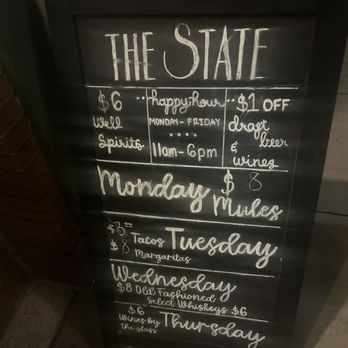 THE STATE
$6 Well Spirits
happy hour
MONDAY - FRIDAY
11am - 6pm
$1 OFF draft beer & wines
Monday $8 Mules
Tacos Tuesday
$8 Margaritas
Wednesday
$8 Old Fashioned
Select Whiskeys $6
$6 Wines by the glass Thursday